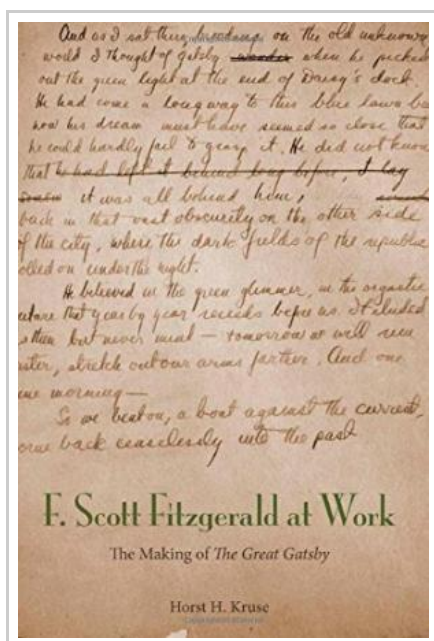 And as I sat there brooding on the old unknown
world I thought of Gatsby when he picked
out the green light at the end of Daisy's dock.
He had come a long way to this blue lawn bu
now his dream must have seemed so close that
he could hardly fail to grasp it. He did not know
that he had left it behind long before, I lay
it was all behind him,
back in that vast obscurity on the other side
of the city, where the dark fields of the republic
olled on under the night.
He believed in the green glimmer, in the orgastic
uture that year by year recedes before us. It eluded
s then but never mind — tomorrow we will run
ster, stretch out our arms farther. And one
ine morning—
So we beat on, a boat against the current,
orne back ceaselessly into the past
F. Scott Fitzgerald at Work
The Making of The Great Gatsby
Horst H. Kruse